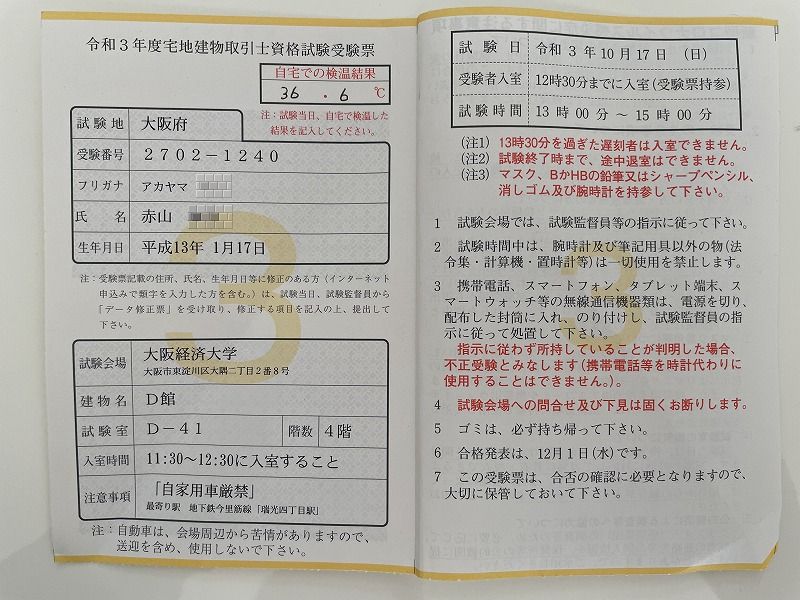 令和３年度宅地建物取引士資格試験受験票
自宅での検温結果
36.6℃
注：試験当日、自宅で検温した
結果を記入してください。
試験地 大阪府
受験番号 2702-1240
フリガナ アカヤマ
氏名 赤山
生年月日 平成13年 1月17日
注：受験票記載の住所、氏名、生年月日等に修正のある方（インターネット
申込みで類字を入力した方を含む。）は、試験当日、試験監督員から
「データ修正票」を受け取り、修正する項目を記入の上、提出して
下さい。
3
試験会場 大阪経済大学
大阪市東淀川区大隅二丁目２番８号
建物名 D館
試験室 D-41 階数 4階
入室時間 11:30～12:30に入室すること
注意事項 「自家用車厳禁」
最寄り駅 地下鉄今里筋線「瑞光四丁目駅」
注：自動車は、会場周辺から苦情がありますので、
送迎を含め、使用しないで下さい。
試験日 令和 3 年10月17日 （日）
受験者入室 12時30分までに入室(受験票持参)
試験時間 13時00分 ～ 15時00分
(注1) 13時30分を過ぎた遅刻者は入室できません。
(注2) 試験終了時まで、途中退室はできません。
(注3) マスク、BかHBの鉛筆又はシャープペンシル、
消しゴム及び腕時計を持参して下さい。
1 試験会場では、試験監督員等の指示に従って下さい。
2 試験時間中は、腕時計及び筆記用具以外の物(法
令集・計算機・置時計等)は一切使用を禁止します。
3 携帯電話、スマートフォン、タブレット端末、ス
マートウォッチ等の無線通信機器類は、電源を切り、
配布した封筒に入れ、のり付けし、試験監督員の指
示に従って処置して下さい。
指示に従わず所持していることが判明した場合、
不正受験とみなします(携帯電話等を時計代わりに
使用することはできません。)。
4 試験会場への問合せ及び下見は固くお断りします。
5 ゴミは、必ず持ち帰って下さい。
6 合格発表は、12月１日(水)です。
7 この受験票は、合否の確認に必要となりますので、
大切に保管しておいて下さい。
3